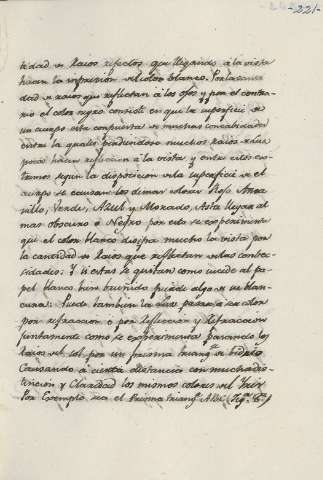 -221-
tidad de Raios refectos que llegando á la vista
hacen la impresion del color blanco. Por la canti
dad de raios que reflectan á los ojos y por el contra
rio el color negro consiste en que la superficie de
un cuerpo esta compuesta de muchas concabidades
entre la quales perdiendose muchos raios
pocos hacen reflecion á la vista y entre estos ex
tremos segun la disposicion de la superficie de el
cuerpo se causan los demas colores Rojo Ama
rillo, Verde, Azul y Morado, Asta llegar al
mas obscuro ó Negro por esto se experimenta
que el color blanco disipa mucho la vista por
la cantidad de raios que reflectan de las conca
bidades: Y si estas se quitan como sucede al pa
pel blanco bien bruñido pierde algo de su blan
cura: Puede tambien la luz pasar á ser color
por refraccion ó por Reflección y Refraccion
juntamente como se experimenta pasando los
raios del sol por un prisma triang.r de bidrio
Causando á cierta distancia con mucha dis
tincion y Claridad los mismos colores del Yris
Por Exemplo sea el Prisma triang.r (Fig.